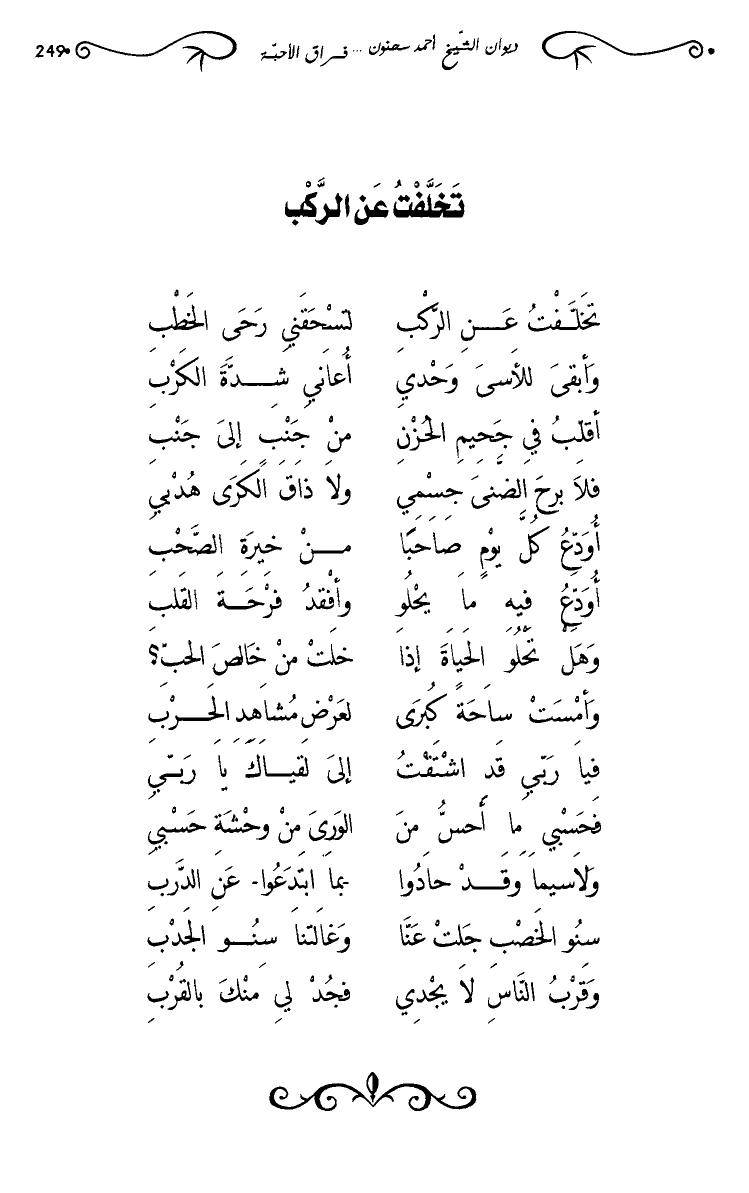 ديوان الشّيخ أحمد سحنون ... فراق الأحبّة 249
تَخَلَّفْتُ عَن الرَّكْب
تخَلَّفْتُ عَنِ الرَّكْبِ لتسْحَقَني رَحَى الخَطْبِ
وَأبقىَ للأسىَ وَحْدي أُعاني شِدَّةَ الكَرْبِ
أقلّبُ في جَحيمِ الحُزْنِ منْ جَنْبٍ إلىَ جَنْبِ
فلاَ برحَ الضنىَ جسْمِي ولاَ ذاقَ الكَرَى هُدْبي
أُوَدّعُ كلَّ يوْمٍ صاحَبًا مِنْ خيرَةِ الصَّحْبِ
أُوَدّعُ فيهِ ما يحْلو وأفْقدُ فرْحَةَ القلبِ
وَهَلْ تَحْلُوَ الحَياةَ إذا خلتْ منْ خَالصِ الحبّ؟
وَأمْسَتْ ساحَةً كُبرَى لعَرْضِ مُشاهِدِ الحَرْبِ
فيا رَبّي قَد اشْتقْتُ إلىَ لقيَاكَ يا رَبّي
فحَسْبي ما أُحسُّ منَ الوَرىَ مِنْ وحْشَةِ حَسْبي
وَلاسيما وقَدْ حادُوا بما ابْتدَعُوا- عَنِ الدَّربِ
سنُو الخَصْبِ جَلتْ عَنَّا وَغَالَتنا سنُو الجَدْبِ
وَقرْبُ النَّاسِ لاَ يجْدِي فجُدْ لي منْكَ بالقُرْبِ